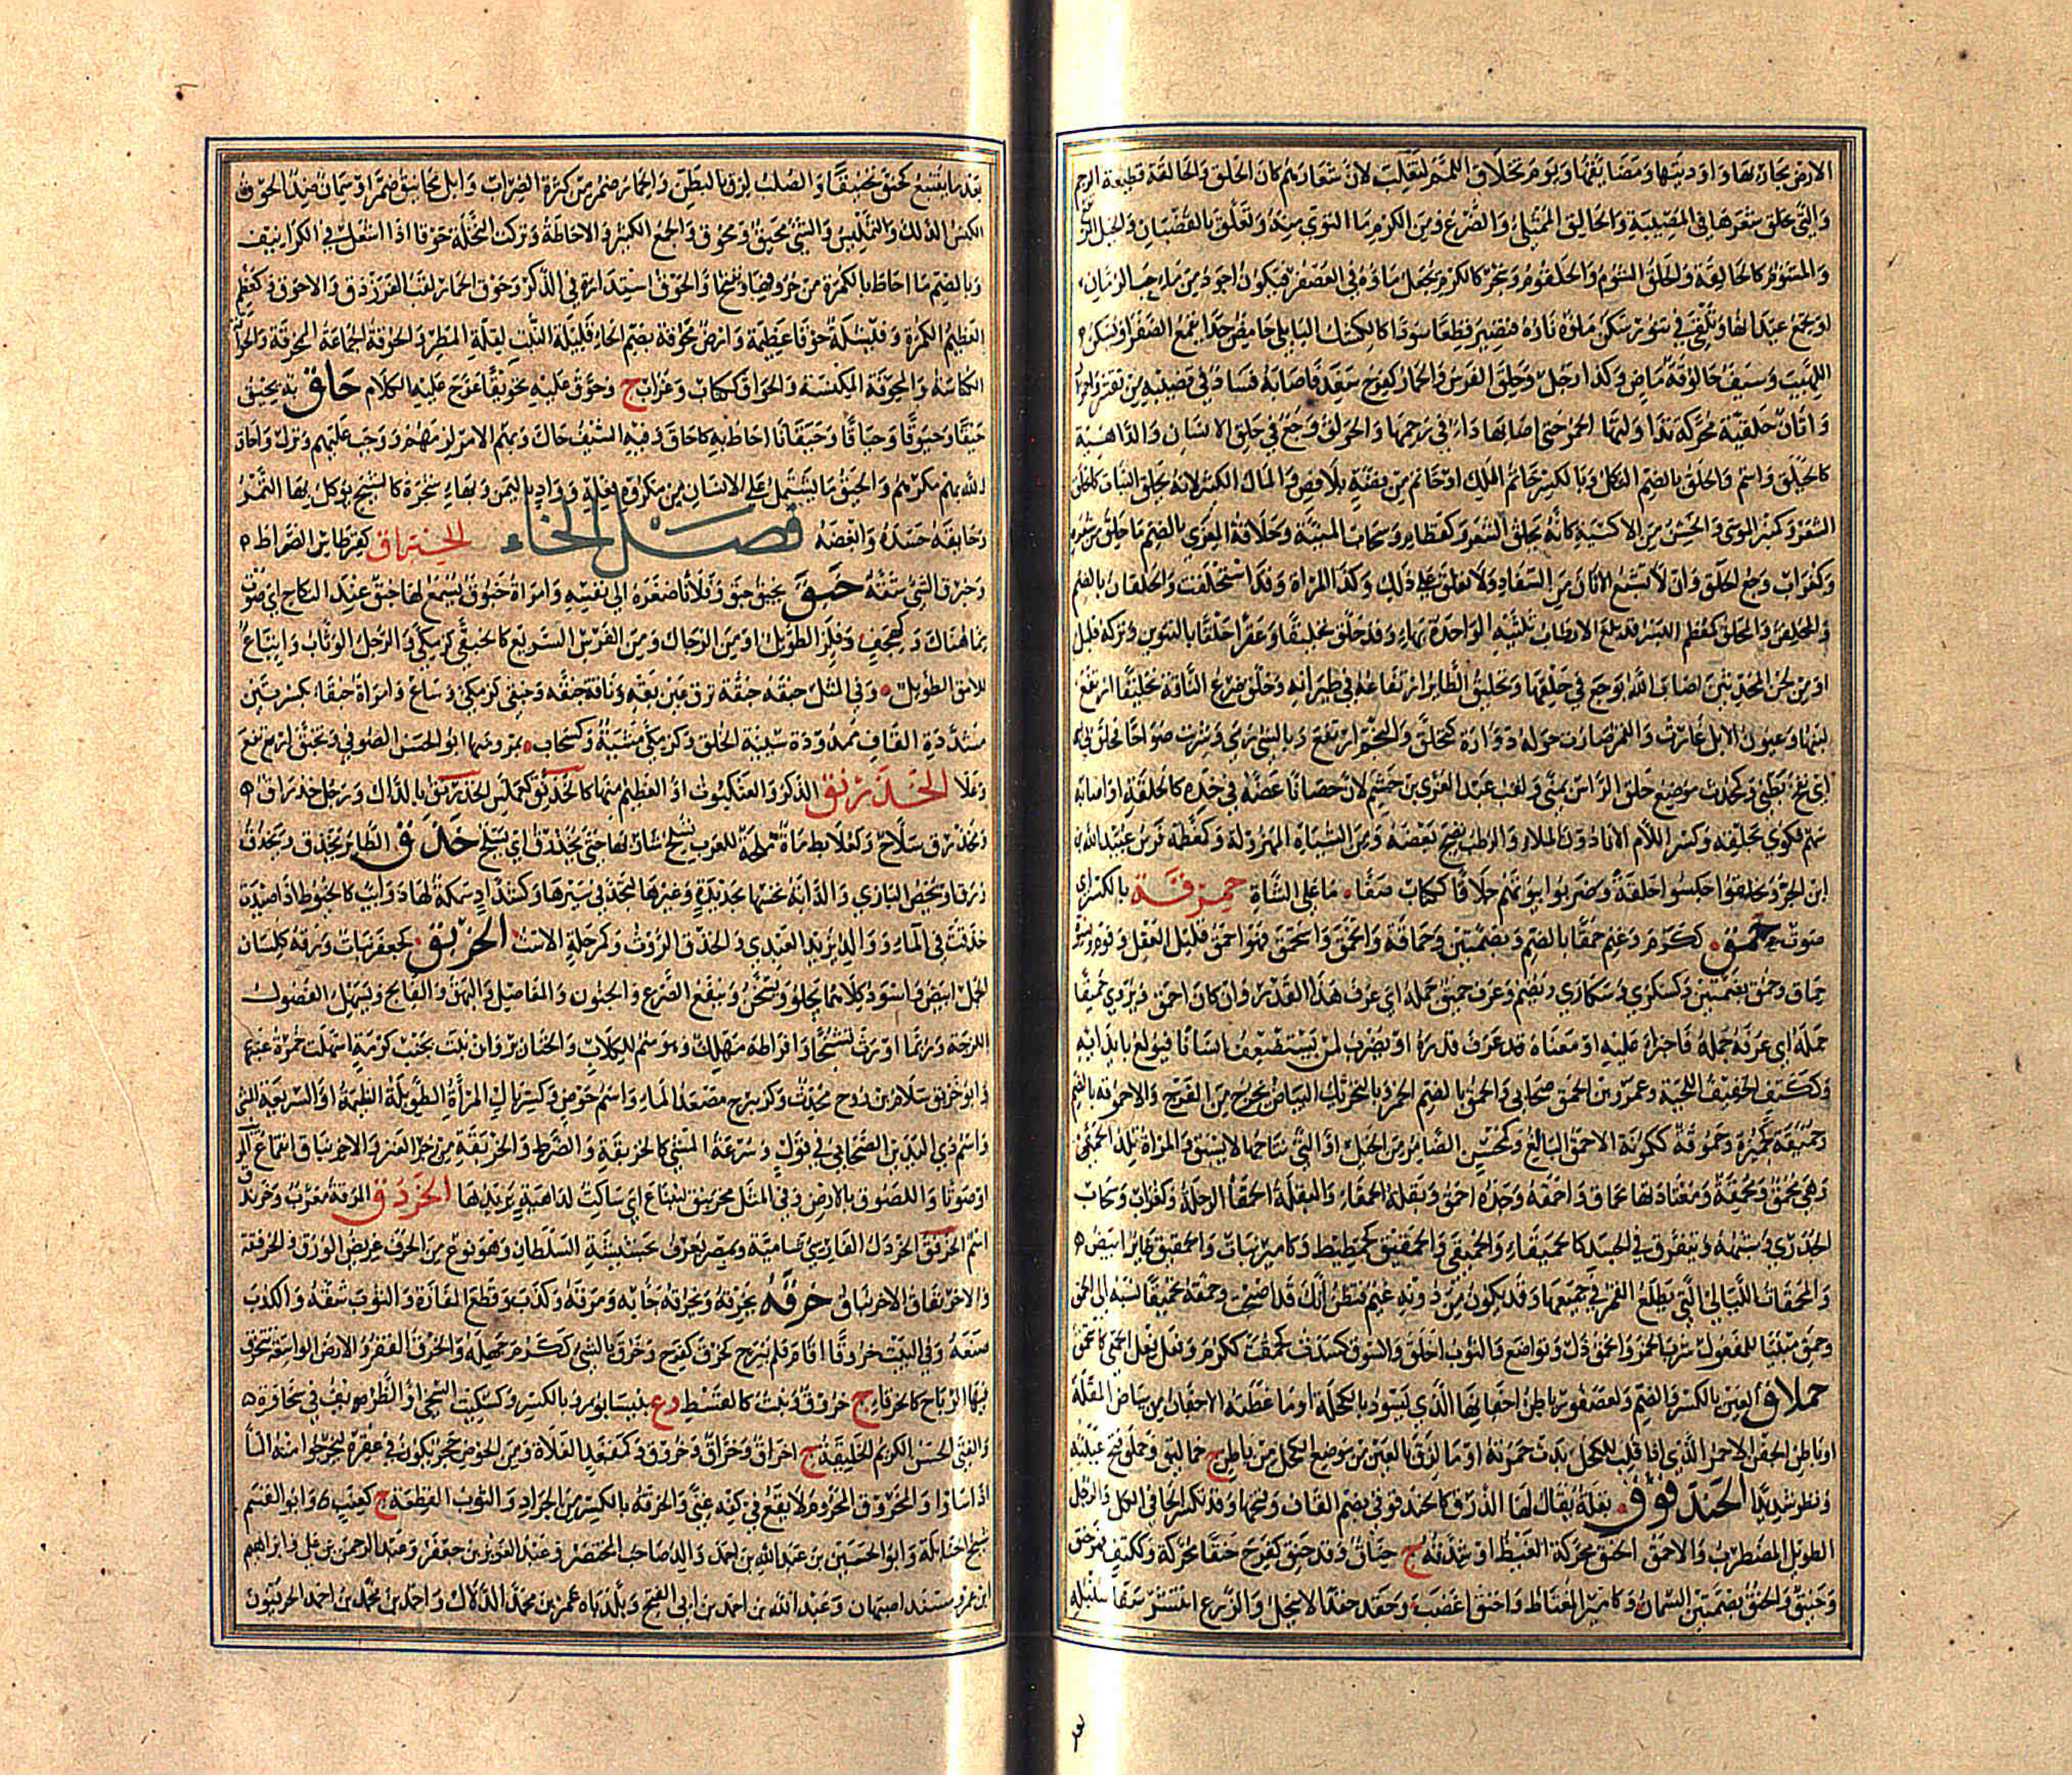 الارض مجاريها واوديتها ومضايقها ويوم تحلاق اللمم لتغلب لان شعارهم كان الحلق والحالقة قطيعة الرحم
والتي تحلق شعرها في المصيبة والحالق الممتلئ والضرع ومن الكرم ما التوى منه وتعلق بالقضبان والجبل المرتفع
والمشؤم كالحالقة والحلق الشؤم والحلقوم وشجر كالكرم يجعل ماؤه في العصفر فيكون اجود من ماء حب الرمان
او يجمع عيدانها وتلقى في تنور سكن ناره فتصير قطعا سودا كالكشك البابلي حامض جدا يقمع الصفراء ويسكن
اللهيب وسيف حالوقة ماض وكذا رجل وحلق الفرس والحمار كفرح سفد فاصابه فساد في قضيبه من تقشر واحمرار
واتان حلقية محركة تداولتها الحمر حتى اصابها داء في رحمها والحولق وجع في حلق الانسان والداهية
كالحيلق واسم والحلق بالضم الثكل وبالكسر خاتم الملك او خاتم من فضة بلا فص والمال الكثير لانه يحلق النبات كما يحلق
الشعر وكمنبر الموسى والخشن من الاكسية كانه يحلق الشعر وكقطام وسحاب المنية وحلاقة المعزى بالضم ما حلق من شعره
وكغراب وجع الحلق وان لا تشبع الاتان من السفاد ولا تعلق على ذلك وكذا المراة وقد استحلقت والحلقان بالضم
والمحلقن والمحلق كمعظم البسر قد بلغ الارطاب ثلثيه الواحدة بهاء وقد حلق تحليقا وعقرا حلقا بالتنوين وتركه قليل
او من لحن المحدثين اصاب الله بوجع في حلقها وتحليق الطائر ارتفاعه في طيرانه وحلق ضرع الناقة تحليقا ارتفع
لبنها وعيون الابل غارت والقمر صارت حوله دوارة كتحلق والنجم ارتفع وبالشئ رمى وشربت صواحا فحلق بي
اي نفخ بطني وكمحدث موضع حلق الراس بمنى ولقب عبد العزى بن خثيم لان حصانا عضه في خده كالحلقة او اصابه
سهم فكوى بحلقة وكسر اللام الاناء دون الملء والرطب نضج بعضه ومن الشياه المهزولة وكمعظمة فرس عبيد الله
ابن الحر وتحلقوا جلسوا حلقة وضربوا بيوتهم حلاقا ككتاب صفا ما على الشاة حمرقة بالكسر اي
صوف حمق ككرم وغنم حمقا بالضم وبضمتين وحماقة وانحمق واستحمق فهو احمق قليل العقل وقوم ونسوة
حماق وحمق بضمتين وكسكرى وسكارى ويضم وعرف حميق جمله اي عرف هذا القدر وان كان احمق ويروى حميقا
جمله اي عرفه جمله فاجترا عليه او معناه قد عرف قدره او يضرب لمن يستضعف انسانا فيولع بايذائه
وككتف الخفيف اللحية وعمرو بن الحمق صحابي والحمق بالضم الخمر
وهي محمق ومحمقة ومعتادتها محماق واحمقه وجده احمق وبقلة الحمقاء والبقلة الحمقاء الرجلة وكغراب وسحاب
الجدري وشبهه ويتفرق في الجسد كالحميقاء والحميقى والحمقيق كحمطيط وكامير نبات والحمقيق طائر ابيض
والمحمقات الليالي التي يطلع القمر في جميعها وقد يكون من دونه غيم فتظن انك قد اصبحت وحمقه تحميقا نسبه الى الحمق
وحمق مبنيا للمفعول شرب الخمر وانحمق ذل وتواضع والثوب اخلق والسوق كسدت كحمقت ككرم وفعل فعل الحمقى كاستحمق
حملاق العين بالكسر والضم وكعصفور باطن اجفانها الذي يسود بالكحلة او ما غطته الاجفان من بياض المقلة
او باطن الجفن الاحمر الذي اذا قلب للكحل بدت حمرته او ما لزق بالعين من موضع الكحل من باطن ج حماليق وحملق فتح عينيه
ونظر شديدا الحندقوق بقلة يقال لها الذرق كالحندقوقى بضم القاف وفتحها وقد تكسر الحاء في الكل والرجل
الطويل المضطرب والاحمق الحنق محركة الغيظ او شدته ج حناق وقد حنق كفرح حنقا محركة وككتف فهو حنق
وحنيق والحنق بضمتين السمان وكامير المغتاظ واحنق اغضب وحقد حقدا لا ينحل والزرع انتشر سفا سنبله
بعد ما يقنبع كحنق تحنيقا والصلب لزق بالبطن والحمار ضمر من كثرة الضراب وابل محانيق ضمر او سمان ضد الحوق
الكنس الدلك والتمليس والشئ محيق ومحوق والجمع الكثير والاحاطة وتركت النخلة حوقا اذا اشعل في الكرانيف
وبالضم ما احاط بالكمرة من حروفها ويفتح او الحوق استدارة في الذكر وحوق الحمار لقب الفرزدق والاحوق وكمعظم
العظيم الكمرة وفيشلة حوقاء عظيمة وارض محوقة بضم الحاء قليلة النبت لقلة المطر والحوقة الجماعة الممخرقة والحواقة
الكناسة والمحوقة المكنسة والحواق ككتاب وغراب ج وحوق عليه تحويقا عوج عليه الكلام حاق به يحيق
حيقا وحيوقا وحيقانا احاط به كاحاق وفيه السيف حاك وبهم الامر لزمهم ووجب عليهم ونزل واحاق
الله بهم مكرهم والحيق ما يشتمل على الانسان من مكروه فعله وواد باليمن وبهاء شجرة كالشيح يؤكل بها التمر
وحايقه حسده وابغضه فصل الخاء الخبراق كقرطاس الضراط
وخبرق الشئ شقه خبق يخبق خبق وفلانا صغره الى نفسه وامراة خبوق يسمع لها خبق عند النكاح اي صوت
مما هناك وكهجف وفلز الطويل او من الرجال ومن الفرس السريع كالخبقى كزمكى والرجل الوثاب
للامق الطويل وفي المثل خبقه خبقه ترق عين بقه وناقة خبقة وخبقى كزمكى وساع وامراة خبقاء بكسرتين
مشددة القاف ممدودة سيئة الخلق وكزمكى مشية وكسحاب بمرو منها ابو الحسن الصوفي وتخبق ارتفع
وعلا الخدرنق الذكر والعنكبوت او العظيم منها كالخدرنق
وخذرق سلاح وكعلابط ماءة ملحة للعرب يسلح شاربها حتى يخذرق اي يسلح خذق الطائر يخذق ويخذق
ذرق او يخص البازي والدابة نخسها بحديدة وغيرها لتجد في سيرها وكشداد سمكة لها ذوائب كالخيوط اذا صيدت
خذقت في الماء ووالد يزيد العبدي والخذق الروث وكمرحلة الاست الخربق كجعفر نبات ورقه كلسان
الحمل ابيض واسود وكلاهما يجلو ويسخن وينفع الصرع والجنون والمفاصل والبهق والفالج ويسهل الفضول
اللزجة وربما اورث تشنجا وافراطه مهلك وهو سم للكلاب والخنازير وان نبت بجنب كرمة اسهلت خمرة عنبها
وابو خربق سلامة بن روح محدث وكزبرج مصنعة الماء واسم حوض وكسربال المراة الطويلة العظيمة او السريعة المشي
واسم ذي اليدين الصحابي في قول وسرعة المشي كالخربقة والضرط والخربقة من خرز العنز والاخرنباق انقماع المريب
او صوتا واللصوق بالارض وفي المثل مخرنبق لينباع اي ساكت لداهية يريدها الخردق المرقة معرب وخرند
اسم الخرفق الخردل الفارسي شامية وبمصر يعرف بحشيشة السلطان وهو نوع من الحرف عريض الورق والخرفقة
والاخرنفاق الاخرنباق خرقه يخرقه ويخرقه جابه ومزقه وكذب وقطع المفازة والثوب شقه والكذب
صنعه وفي البيت خروقا اقام فلم يبرح كخرق كفرح وخرق بالشئ ككرم جهله والخرق القفر والارض الواسعة تتخرق
فيها الرياح كالخرقاء ج خروق ونبت كالقسط وع بنيسابور وبالكسر وكسكيت السخي او الظريف في سخاوة
والفتى الحسن الكريم الخليقة ج اخراق وخراق وخروق
اذا شاؤا والمخروق المحروم لا يقع في كفه غنى والخرقة بالكسر من الجراد والثوب القطعة ج كعنب وابو القسم
شيخ الحنابلة وابو الحسين بن عبد الله بن احمد والد صاحب المختصر وعبد العزيز بن جعفر وعبد الرحمن بن علي وابراهيم
ابن عمرو مسند اصبهان وعبد الله بن احمد بن ابي الفتح وبلديه عمر بن محمد الدلال واحمد بن محمد بن احمد الخرقيون